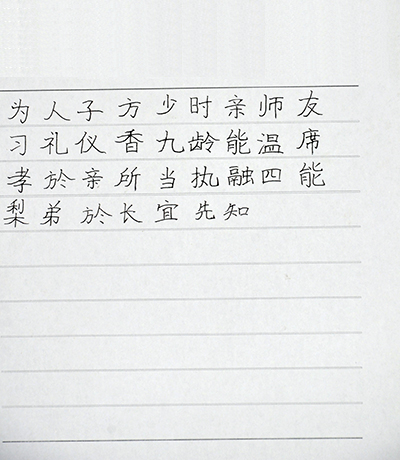 为人子方少时亲师友
习礼仪香九龄能温席
孝於亲所当执融四能
梨弟於长宜先知